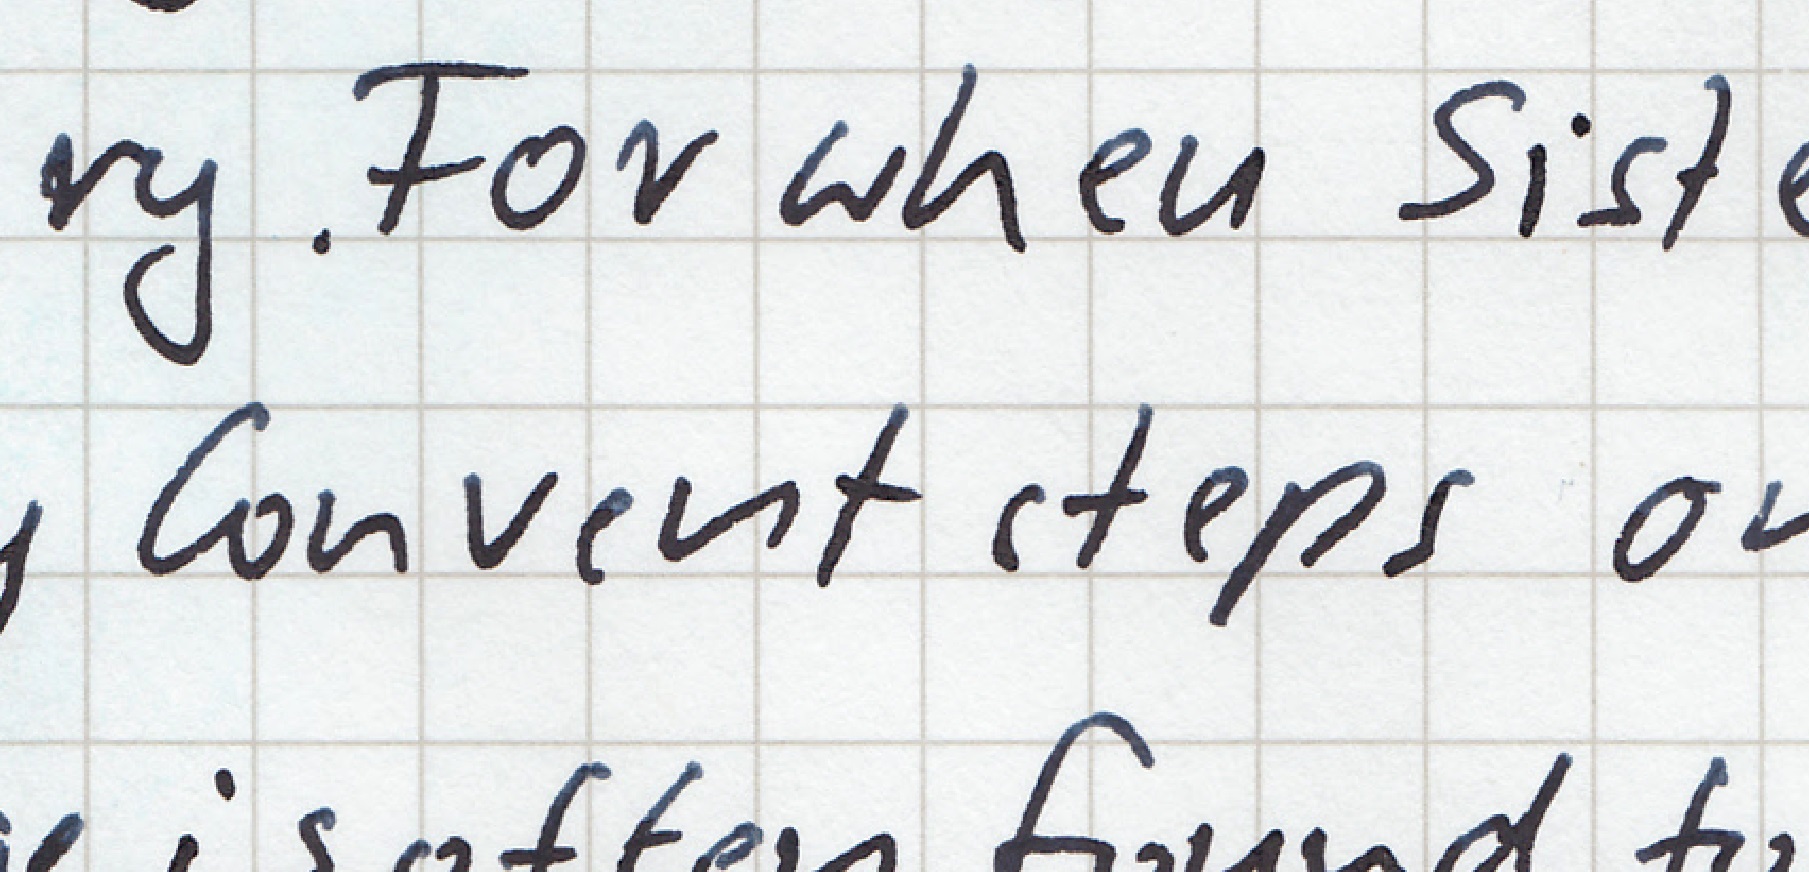 ry. For when Siste
y Convent steps ou
e is often found to